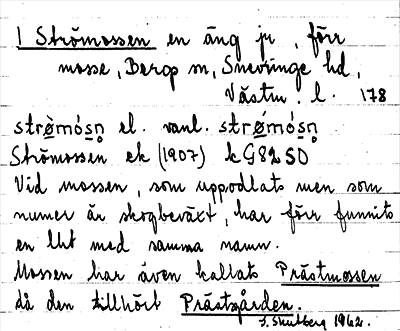 1 Strömossen en äng jr, förr
mosse, Bergs sn, Snevringe hd,
Västm. l. 178
strø̀mósn̥ el. vanl. strǿmósn̥
Strömossen ek (1907) kG82SO
Vid mossen, som uppodlats men som
numer är skogbeväxt, har förr funnits
en lht med samma namn.
Mossen har även kallats Prästmossen
då den tillhört Prästgården.
1962.